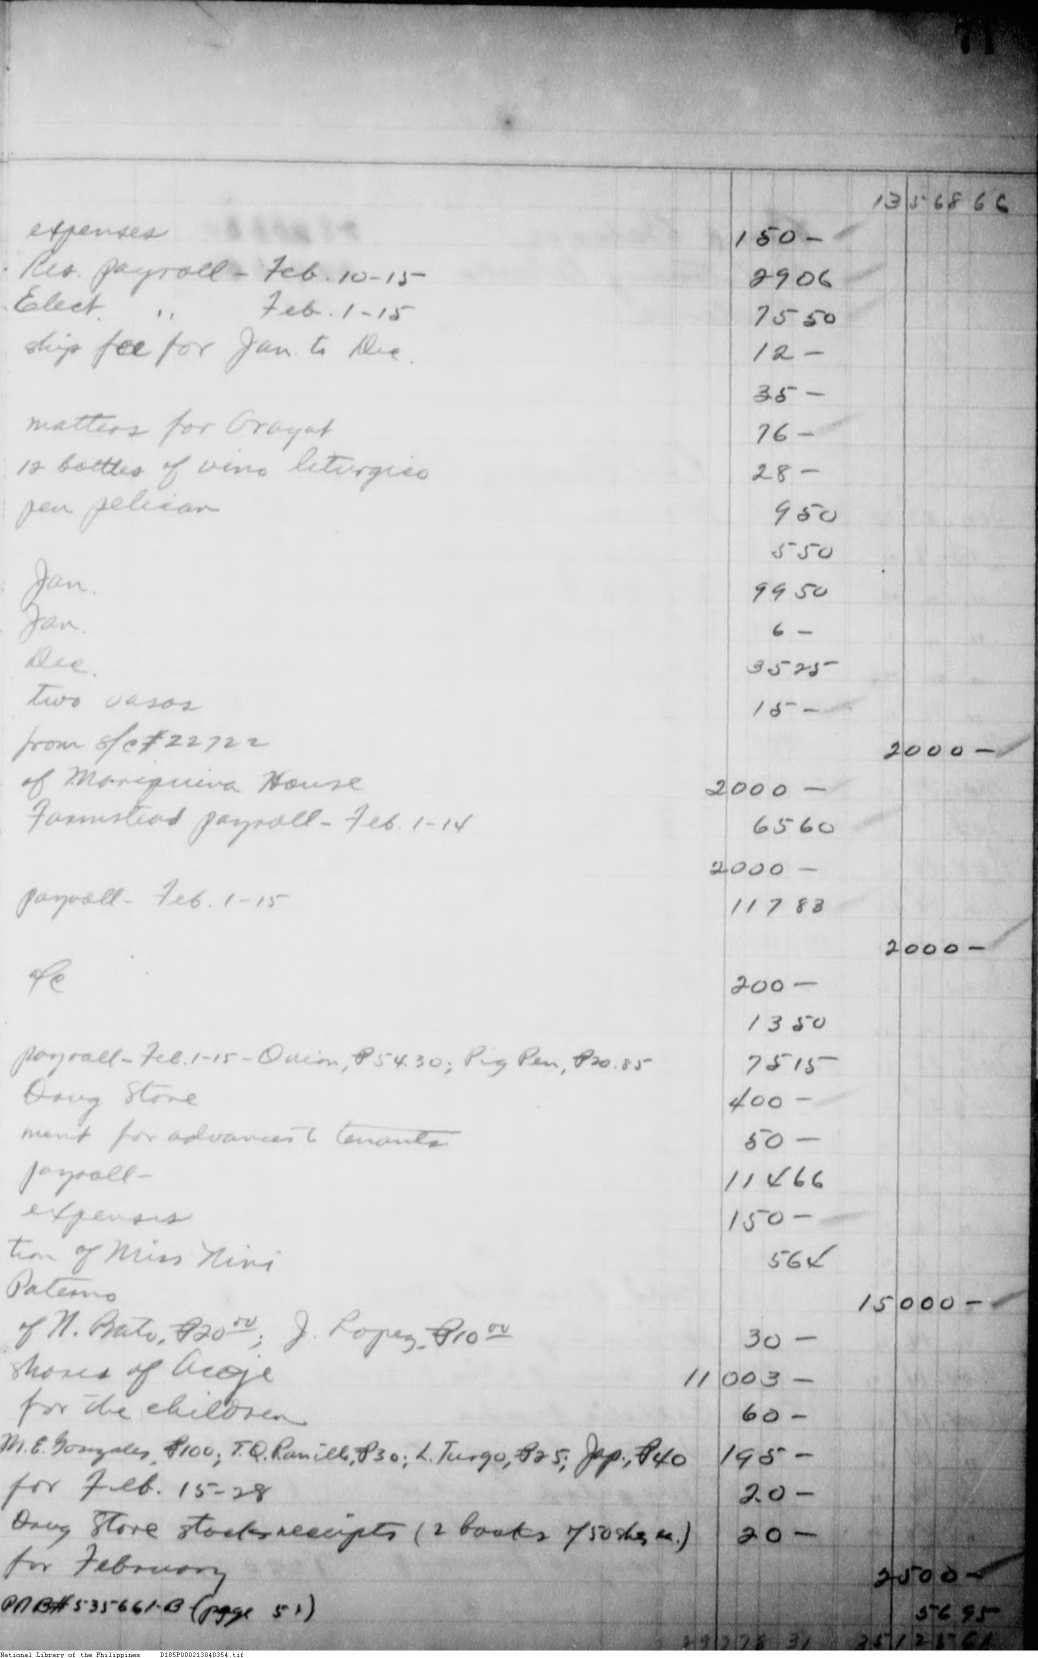 71
13 568 66
expenses 150 -
Res. payroll - Feb. 10-15 29 06
Elect. " Feb. 1-15 75 50
ship fee for Jan. to Dec. 12 -
35 -
matters for Arayat 76 -
12 bottles of vino liturgico 28 -
pen pelican 9 50
5 50
Jan. 99 50
Jan. 6 -
Dec. 35 25
two vasos 15 -
from s/c #22722 2000 -
of Mariquina House 2000 -
Farmstead payroll - Feb. 1-14 65 60
2000 -
payroll - Feb. 1-15 117 83
2000 -
a/c 200 -
13 50
payroll - Feb. 1-15 - Onion, ₱54.30; Pig Pen, ₱20.85 75 15
Drug Store 400 -
ment for advances to tenants 50 -
payroll - 114 66
expenses 150 -
tion of Miss Nini 5 64
Paterno 15000 -
of N. Bato, ₱20.00; J. Lopez, ₱10.00 30 -
shares of Acoje 11 003 -
for the children 60 -
M. E. Gonzales, ₱100; T. Q. Ranillo, ₱30; L. Turgo, ₱25; Jap., ₱40 195 -
for Feb. 15-28 20 -
Drug Store stocks receipts (2 books of 50 shs ea.) 20 -
for February 2500 -
PNB# 535661-B (page 51) 56 95
29 278 31 35 125 61
National Library of the Philippines D185P000213840354.tif